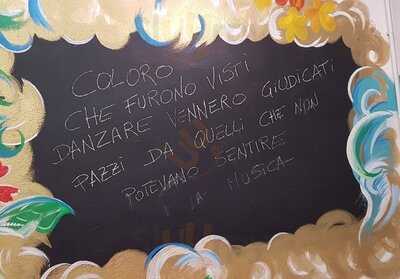 COLORO
CHE FURONO VISTI
DANZARE VENNERO GIUDICATI
PAZZI DA QUELLI CHE NON
POTEVANO SENTIRE
LA MUSICA